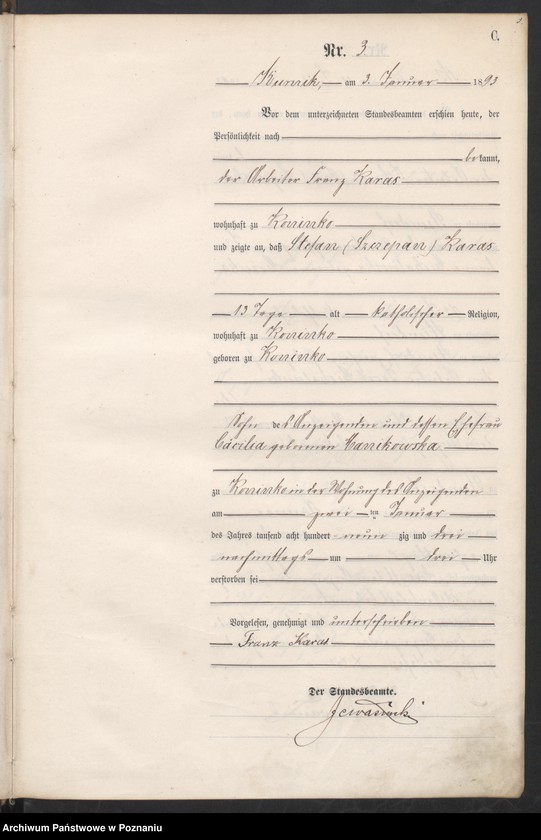 C.
Nr. 3.
Kurnik, am 3. Januar 1893
Vor dem unterzeichneten Standesbeamten erschien heute, der
Persönlichkeit nach
bekannt,
der Arbeiter Franz Karas
wohnhaft zu Koninko
und zeigte an, daß Stefan (Szczepan) Karas
13 Tage alt katholischer Religion,
wohnhaft zu Koninko
geboren zu Koninko
Sohn des Anzeigenden und dessen Ehefrau
Cäcilia geborenen
zu Koninko in der Wohnung des Anzeigenden
am zwei ten Januar
des Jahres tausend acht hundert neun zig und drei
nachmittags um drei Uhr
verstorben sei
Vorgelesen, genehmigt und unterschrieben
Franz Karas
Der Standesbeamte.
Archiwum Państwowe w Poznaniu